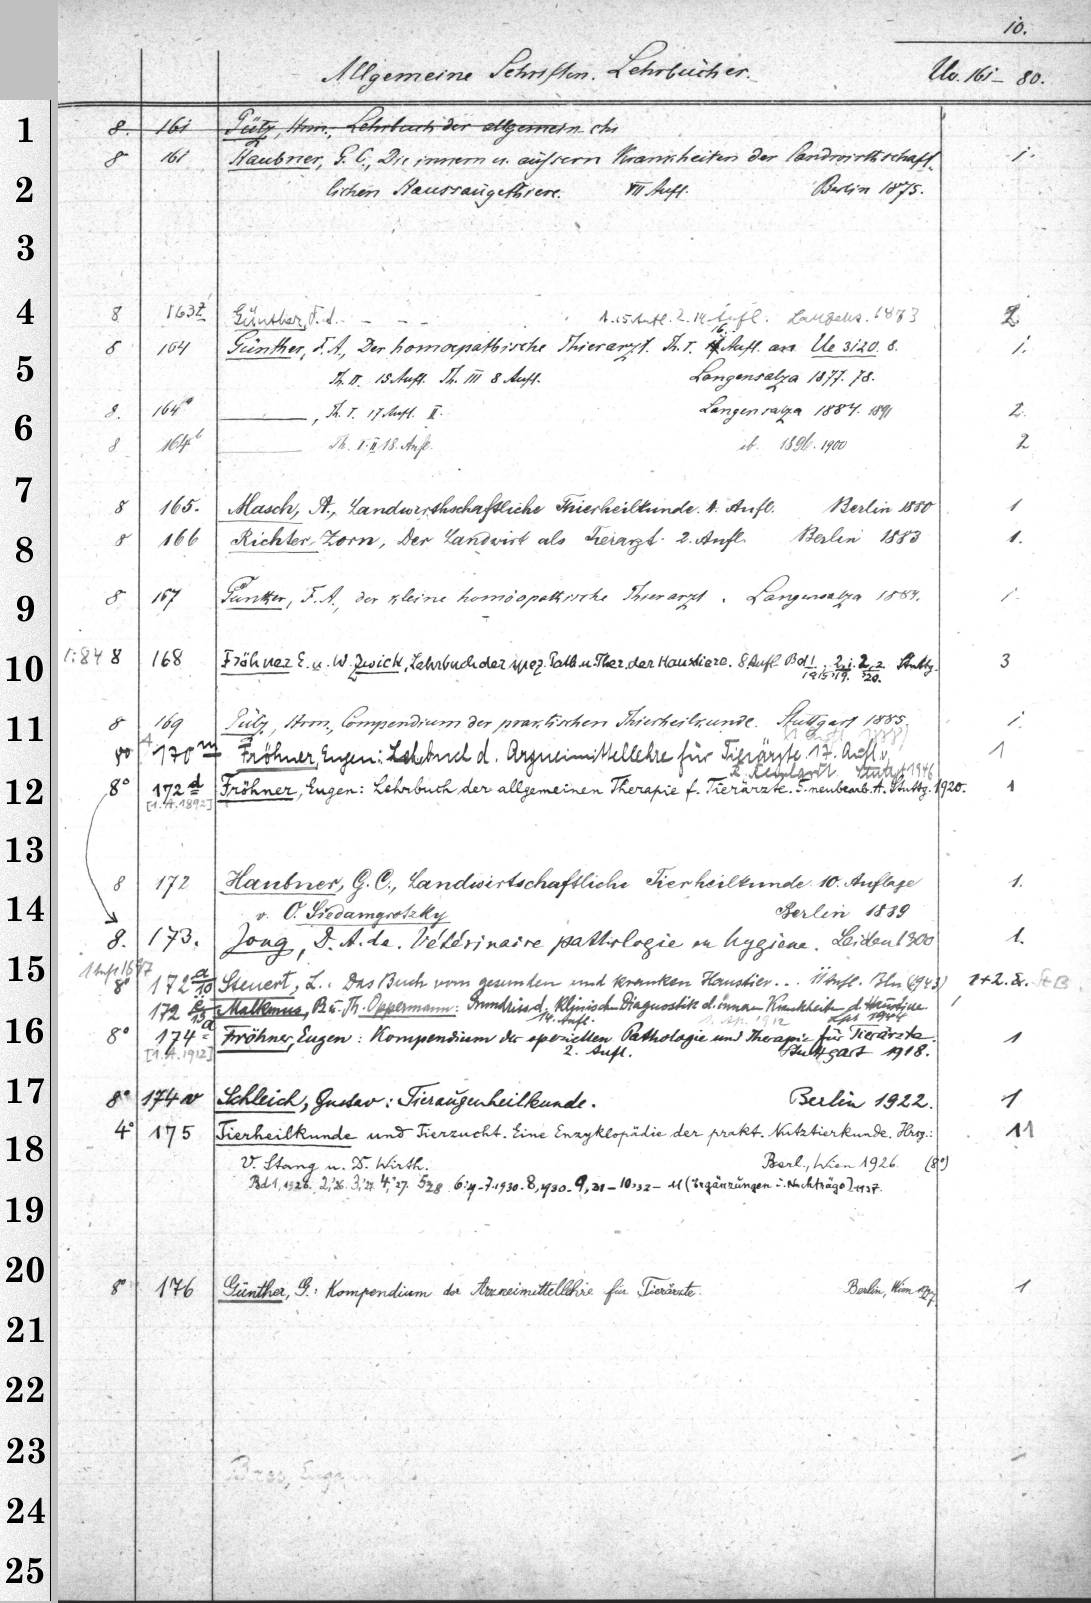 10.
Allgemeine Schriften. Lehrbücher. Uv. 161–80.
1
8. 161 Pütz, Herm., Lehrbuch der allgemein. chi
8 161 Haubner, G. C., Die innern u. äussern Krankheiten der landwirthschaft- 1.
2
lichen Haussäugethiere. VII Aufl. Berlin 1875.
3
4
8 163z Günther, F. A. – – – 1. 15 Aufl. 2. 14 Aufl. Langens. 1873 2
8 164 Günther, F. A., Der homoepathische Thierarzt. Th. I. 16. Aufl. an Ue 3120. 8. 1.
5
Th. II. 15 Aufl. Th. III 8 Aufl. Langensalza 1877. 78.
8. 164a ———, Th. I. 17 Aufl. II. Langensalza 1884. 1891 2.
6
8 164b ——— Th. I. II 18. Aufl. ib. 1896. 1900 2
7
8 165. Masch, A., Landwirthschaftliche Thierheilkunde. 1. Aufl. Berlin 1880 1
8
8 166 Richter-Zorn, Der Landwirt als Tierarzt. 2. Aufl. Berlin 1883 1.
9
8 167 F. A., der kleine homöopathische Thierarzt. Langensalza 1884. 1.
10
8 168 Fröhner E. u. W. Zwick, Lehrbuch der spez. Path. u. Ther. der Haustiere. 8 Aufl. Bd 1. 2,1. 2,2 Stuttg. 3
1915. 19. 20.
11
8 169 Pütz, Herm., Compendium der praktischen Thierheilkunde. Stuttgart 1885. 1.
8° 170m Fröhner, Eugen: Lehrbuch d. Arzneimittellehre für Tierärzte. 17. Aufl. v. 1
R. Reinhardt Stuttgart 1946
12
8° 172d Fröhner, Eugen: Lehrbuch der allgemeinen Therapie f. Tierärzte. 5. neubearb. A. Stuttg. 1920. 1
[1. A. 1892]
13
8 172 Haubner, G. C., Landwirtschaftliche Tierheilkunde. 10. Auflage 1.
14
v. O. Siedamgrotzky Berlin 1889
8. 173. Jong, D. A. de. Vétérinaire pathologie en hygiene. Leiden 1900 1.
15
8° 172 a/10 Steuert, L.: Das Buch vom gesunden und kranken Haustier... 11 Aufl. Bln (1943) 1+2. Ex.
172 Malkmus, B. u. Th. Oppermann: Grundriss d. klinischen Diagnostik d. inneren Krankheiten d. Haustiere
14. Aufl. 1944
16
8° 174a Fröhner, Eugen: Kompendium der speziellen Pathologie und Therapie für Tierärzte. 1
[1. A. 1912] 2. Aufl. Stuttgart 1918.
17
8° 174v Schleich, Gustav: Tieraugenheilkunde. Berlin 1922. 1
4° 175 Tierheilkunde und Tierzucht. Eine Enzyklopädie der prakt. Nutztierkunde. Hrsg.: 11
18
V. Stang u. D. Wirth. Berl., Wien 1926. (8°)
Bd 1, 1926. 2,'26. 3,'27. 4,'27. 5,28. 6,'29–7. 1930. 8, 1930–9, 31–10, 32–11 (Ergänzungen u. Nachträge) 1937.
19
20
8° 176 Günther, G.: Kompendium der Arzneimittellehre für Tierärzte. Berlin, Wien 1
21
22
23
24
25